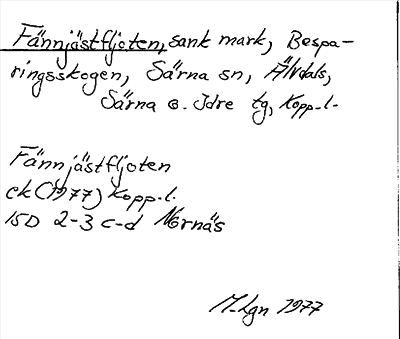 Fännjästfljoten, sank mark, Bespa-
ringsskogen, Särna sn, Älvdals,
Särna o. Idre tg, Kopp.l.
Fännjästfljoten
ek (1977) Kopp.l.
15D 2-3 c-d Nornäs
M-Lgn 1977